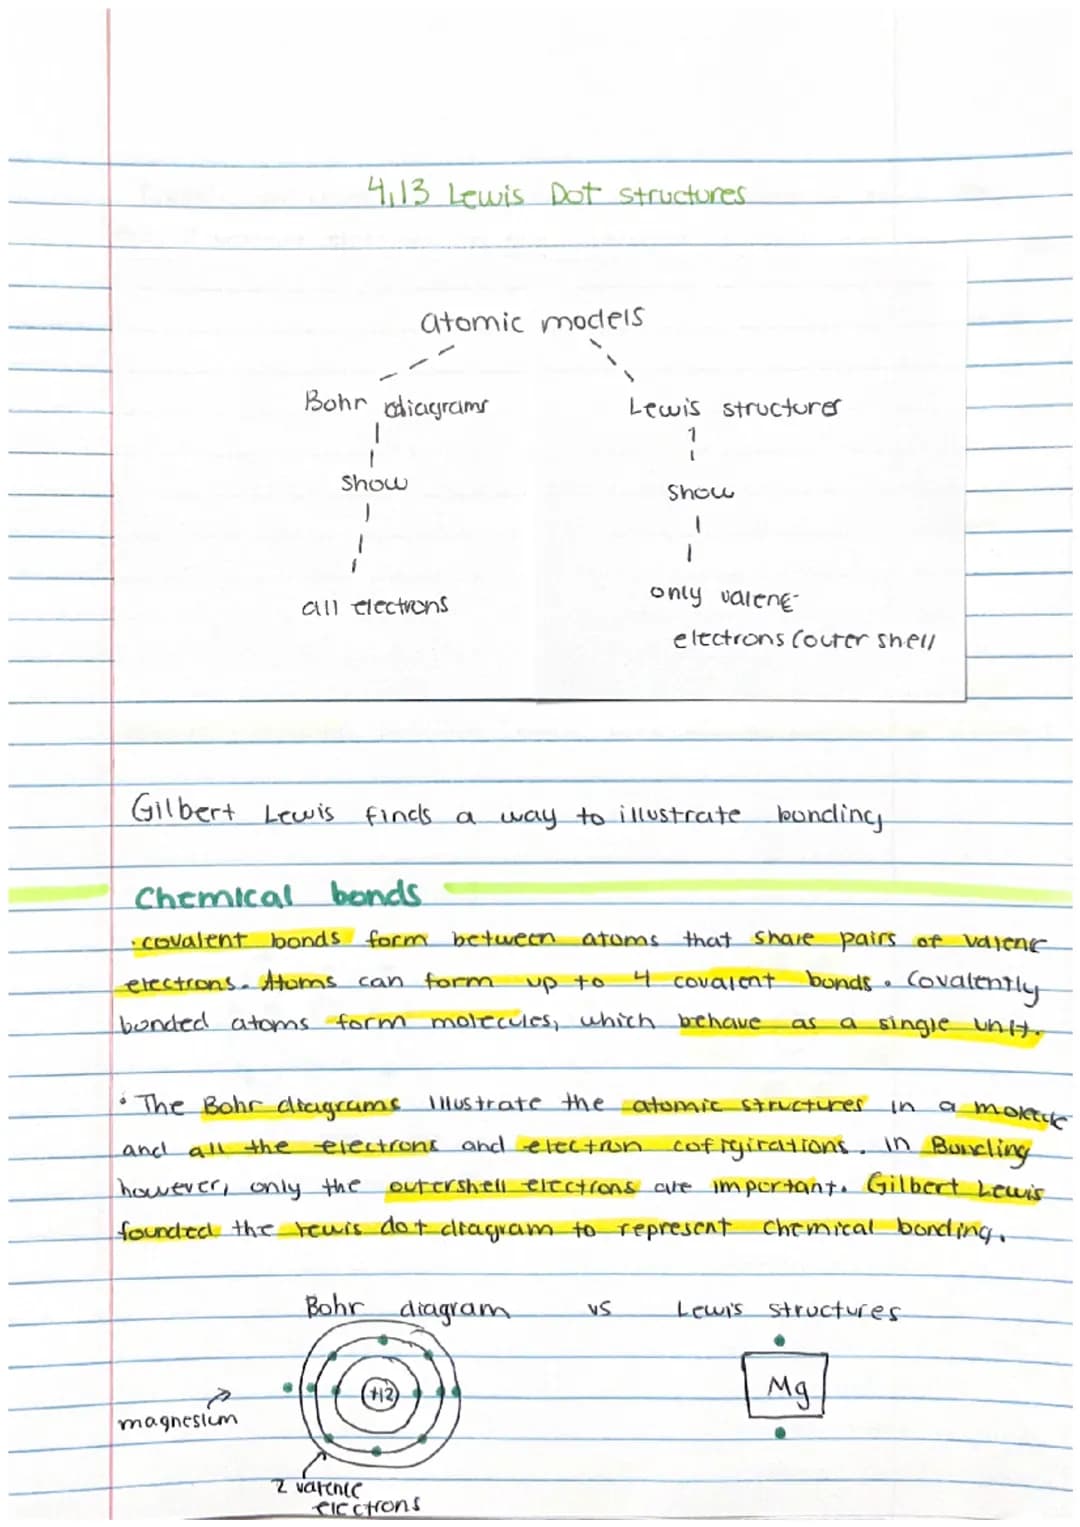 4.13 Lewis Dot structures
atomic models
Bohr diagrams
Lewis structures
show
show
all electrons
only valene
electrons (outer shell
Gilbert Lewis finds a way to illustrate bonding
Chemical bonds
· covalent bonds form between atoms that share pairs of valene
electrons. Atoms can form up to 4 covalent bonds. Covalently
bonded atoms form molecules, which behave as a single unit.
• The Bohr diagrams illustrate the atomic structures in a molecule
and all the electrons and electron cofigirations. in Bonding
however, only the outershell electrons are important. Gilbert Lewis
founded the lewis dot diagram to represent chemical bonding.
Bohr diagram vs Lewis structures
+12
Mg
magnesium
2 valence
electrons